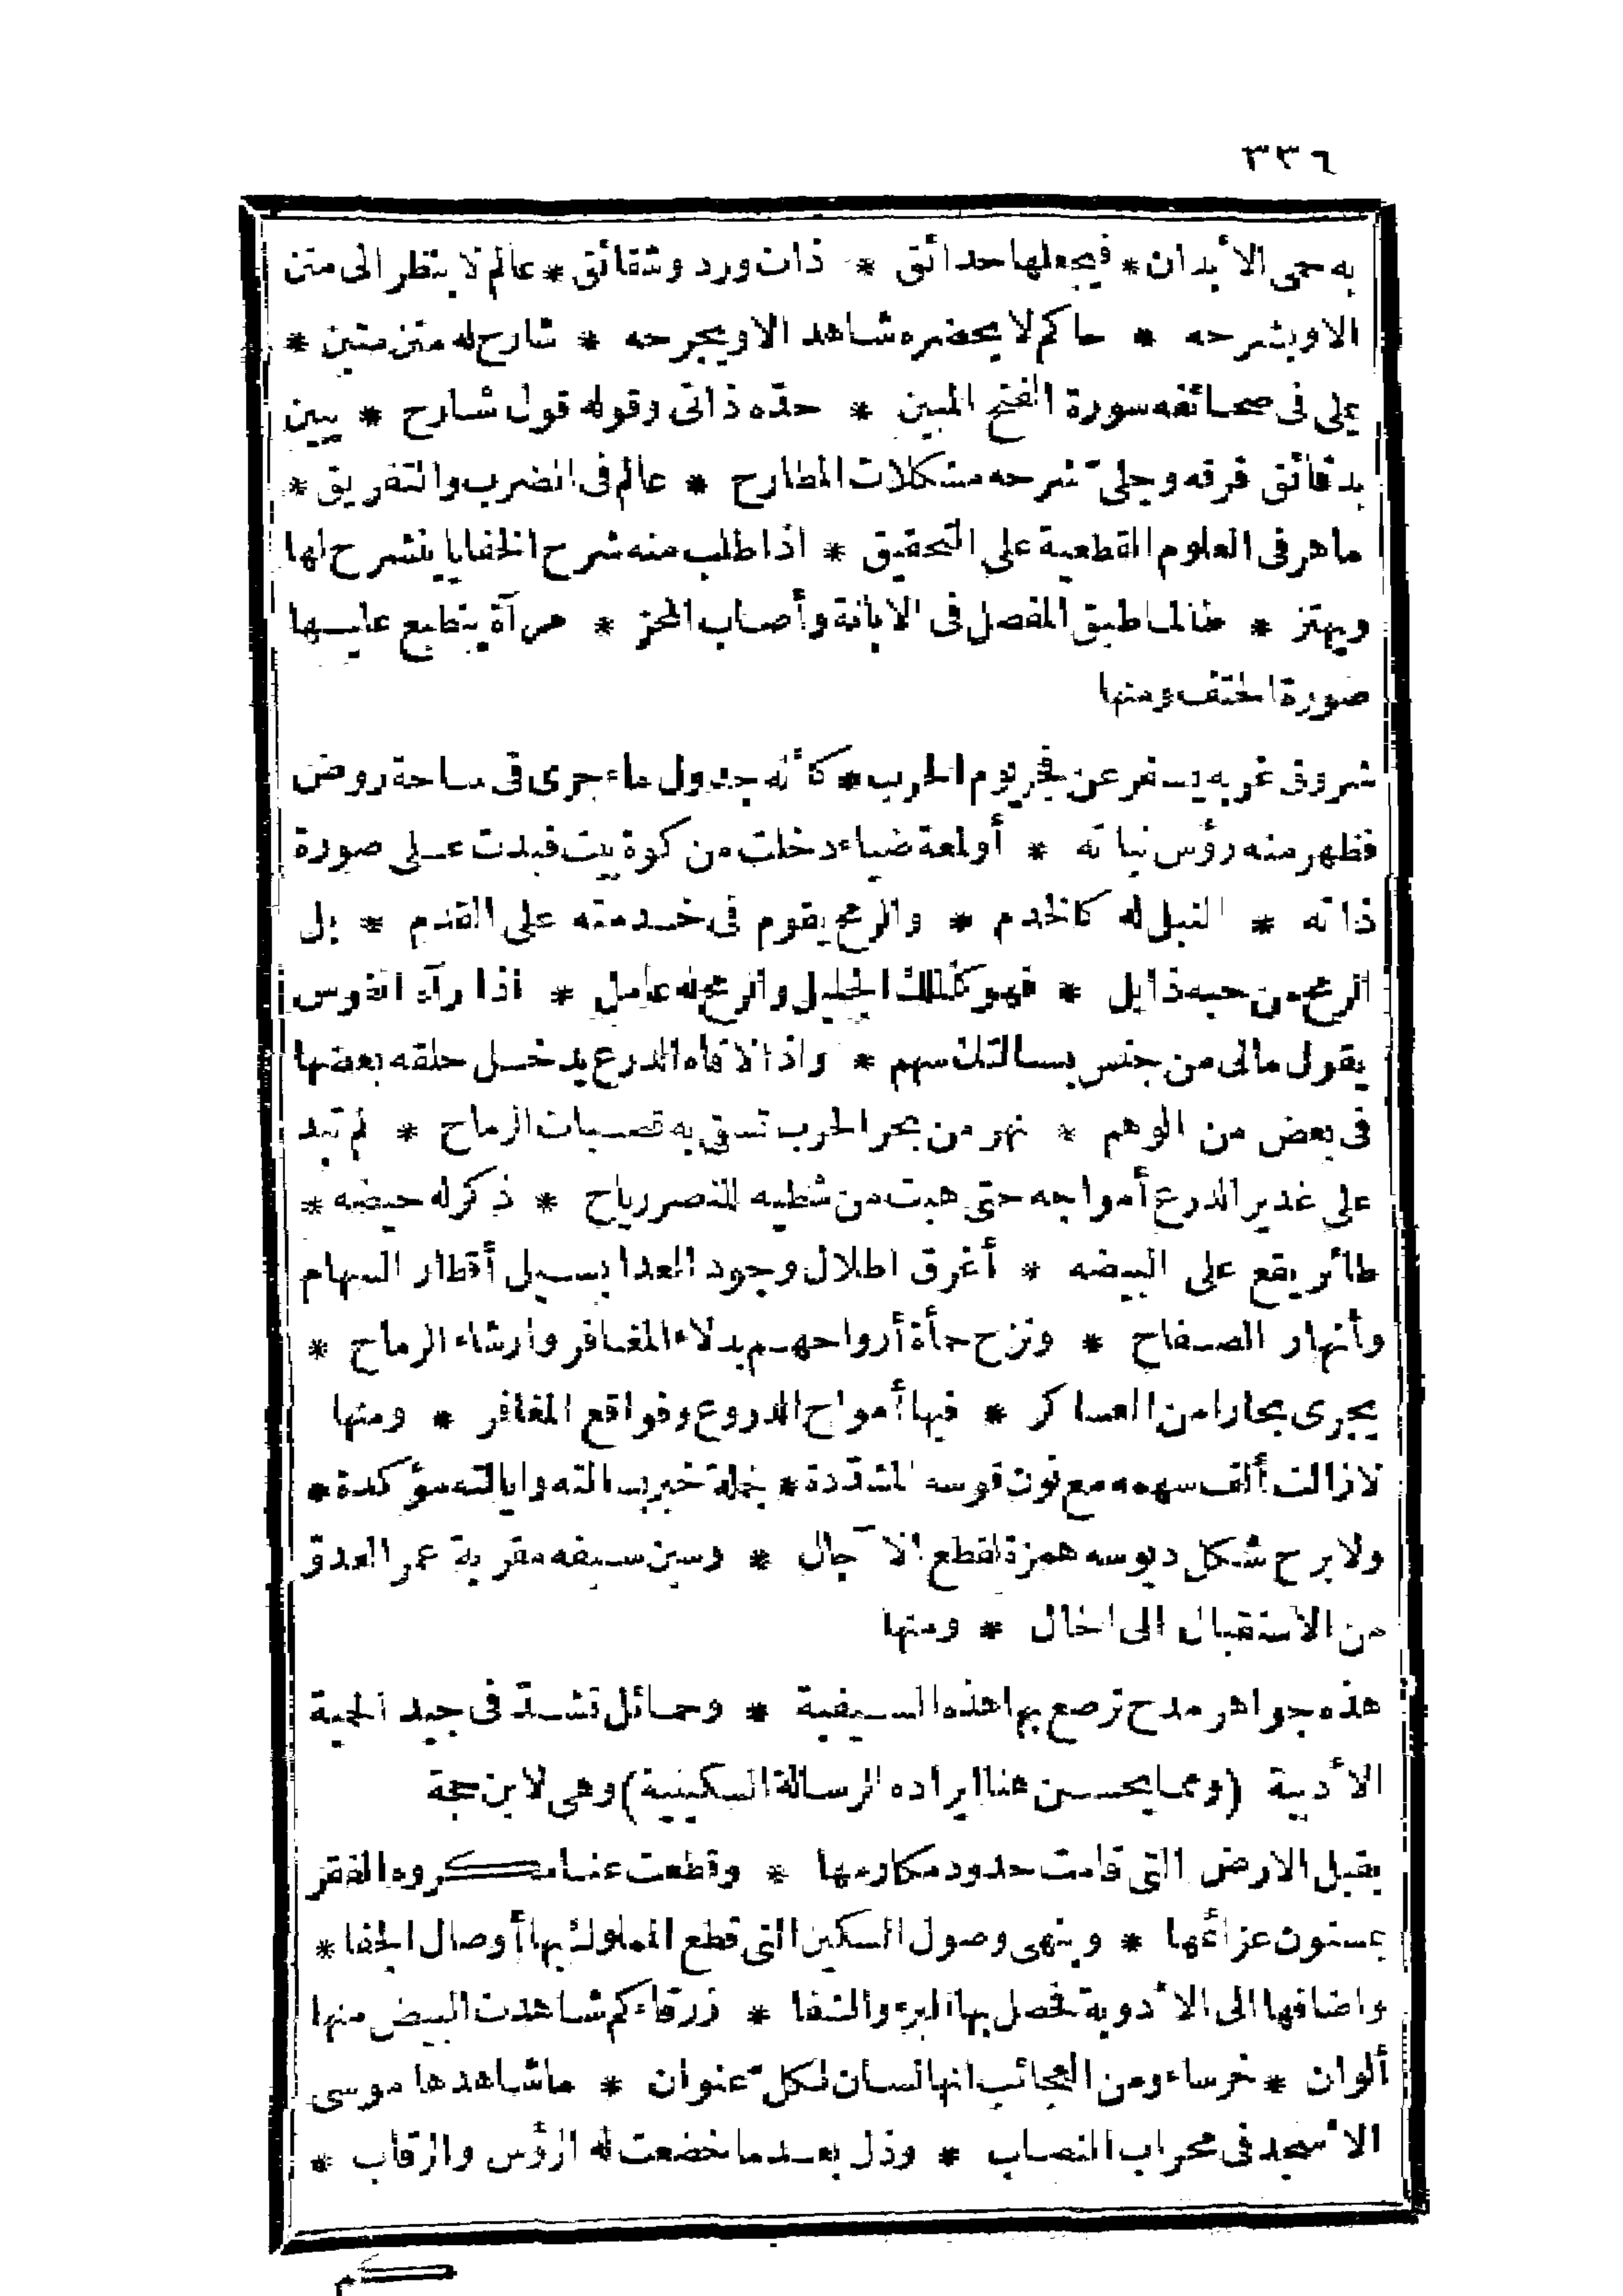 ٣٣٦
به حمى الأبدان * فيجعلها حدائق * ذات ورد وشقائق * عالم لا ينظر الى متن
الا ويشرحه * حاكم لا يحضره شاهد الا ويجرحه * شارح له متن متين *
يملى فى صحائفه سورة الفتح المبين * حده ذاتى وقوله قول شارح * يبين
بدقائق فرقه وجلىّ شرحه مشكلات المطارح * عالم فى الضرب والتفريق *
ماهر فى العلوم القطعية على التحقيق * اذا طلب منه شرح الخفايا ينشرح لها
ويهتز * طالما طبق المفصل فى الابانة وأصاب المحز * مرآة ينطبع عليها
صورة الحتف ومنها
شروق غربه يسفر عن فجر يوم الحرب * كأنه جدول ماء جرى فى ساحة روض
فظهر منه رؤس نباته * أو لمعة ضياء دخلت من كوة بيت فبدت على صورة
ذاته * النبل له كالخدم * والرمح يقوم فى خدمته على القدم * بل
الرمح من حبه ذابل * فهو كالملك الجليل والرمح له عامل * اذا رآه القوس
يقول مالى من جنس بسالتك سهم * واذا لاقاه الدرع يدخل حلقه بعضها
فى بعض من الوهم * نهر من بحر الحرب تسقى به قصبات الرماح * لم تبد
على غدير الدرع أمواجه حتى هبت من شطيه للنصر رياح * ذكر له حيضه *
طائر يقع على البيضه * أغرق اطلال وجود العدا بسيل أقطار السهام
وأنهار الصفاح * ونزح حمأة أرواحهم بدلاء المغافر وارشاء الرماح *
يجرى بحارا من العساكر * فيها أمواج الدروع وفواقع المغافر * ومنها
لا زالت ألف سهمه مع نون قوسه المشددة * لجملة خبر بسالته وايالته مؤكدة *
ولا برح شكل دبوسه همزة لقطع الآجال * وسين سيفه مقربة عمر العدوّ
من الاستقبال الى الحال * ومنها
هذه جواهر مدح ترصع بها هذه السيفية * وحمائل تشدّ فى جيد الحمية
الأدبية (ومما يحسن هنا ايراده الرسالة السكينية) وهى لابن حجة
يقبل الارض التى قامت حدود مكارمها * وقطعت عنا مكروه الفقر
بمسنون عزائمها * وينهى وصول السكين التى قطع المملوك بها أوصال الجفا *
واضافها الى الأدوية فحصل بها البرء والشفا * زرقاء كم شاهدت البيض منها
ألوان * خرساء ومن العجائب انها لسان لكلّ عنوان * ما شاهدها موسى
الا سجد فى محراب النصاب * وذل بعد ما خضعت له الرؤس والرقاب *
كم